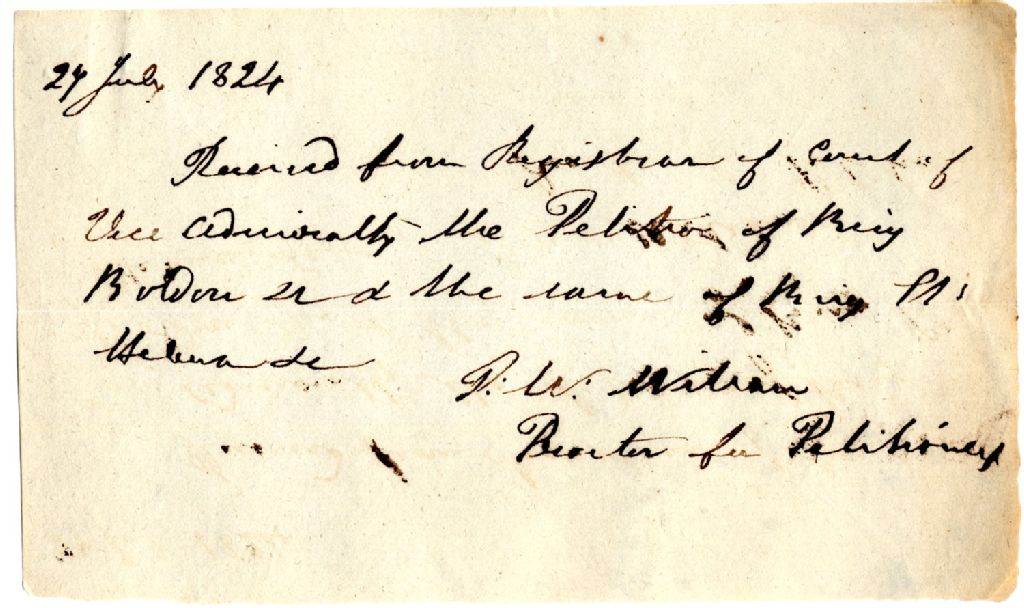 27 July 1824
Received from Registrar of Court of
Vice Admiralty the Petition of Brig
Boldon & the same of Brig St
Helena &c
P. W.
Proctor for Petitioners